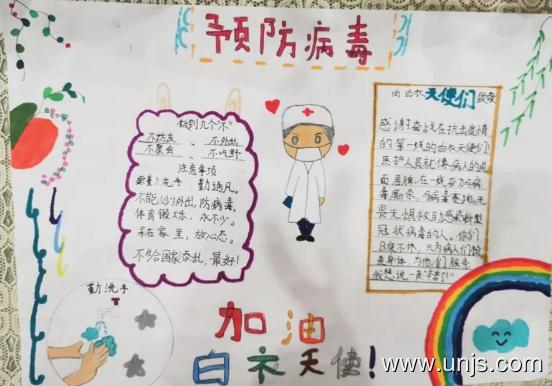 预防病毒
做到几个"不"
不访友、不外出
不聚会、不吃野
注意事项
要量力洗手，勤通风。
不能(少)外出，防病毒。
体育锻炼，永不少。
呆在家里，放心态。
不给国家添乱，最好！
勤洗手
向白衣天使们致敬
感谢奋战在抗击疫情
的第一线的白衣天使们
医护人员就像病人的
面屏障，在一线奋力与病
毒厮杀，与病毒赛跑，无
畏无惧救助感染新型
冠状病毒的人。你们
日夜不休，只为病人们
身体，为他们服务
我想说一声“辛苦了！”
加油
白衣天使！
www.unjs.com